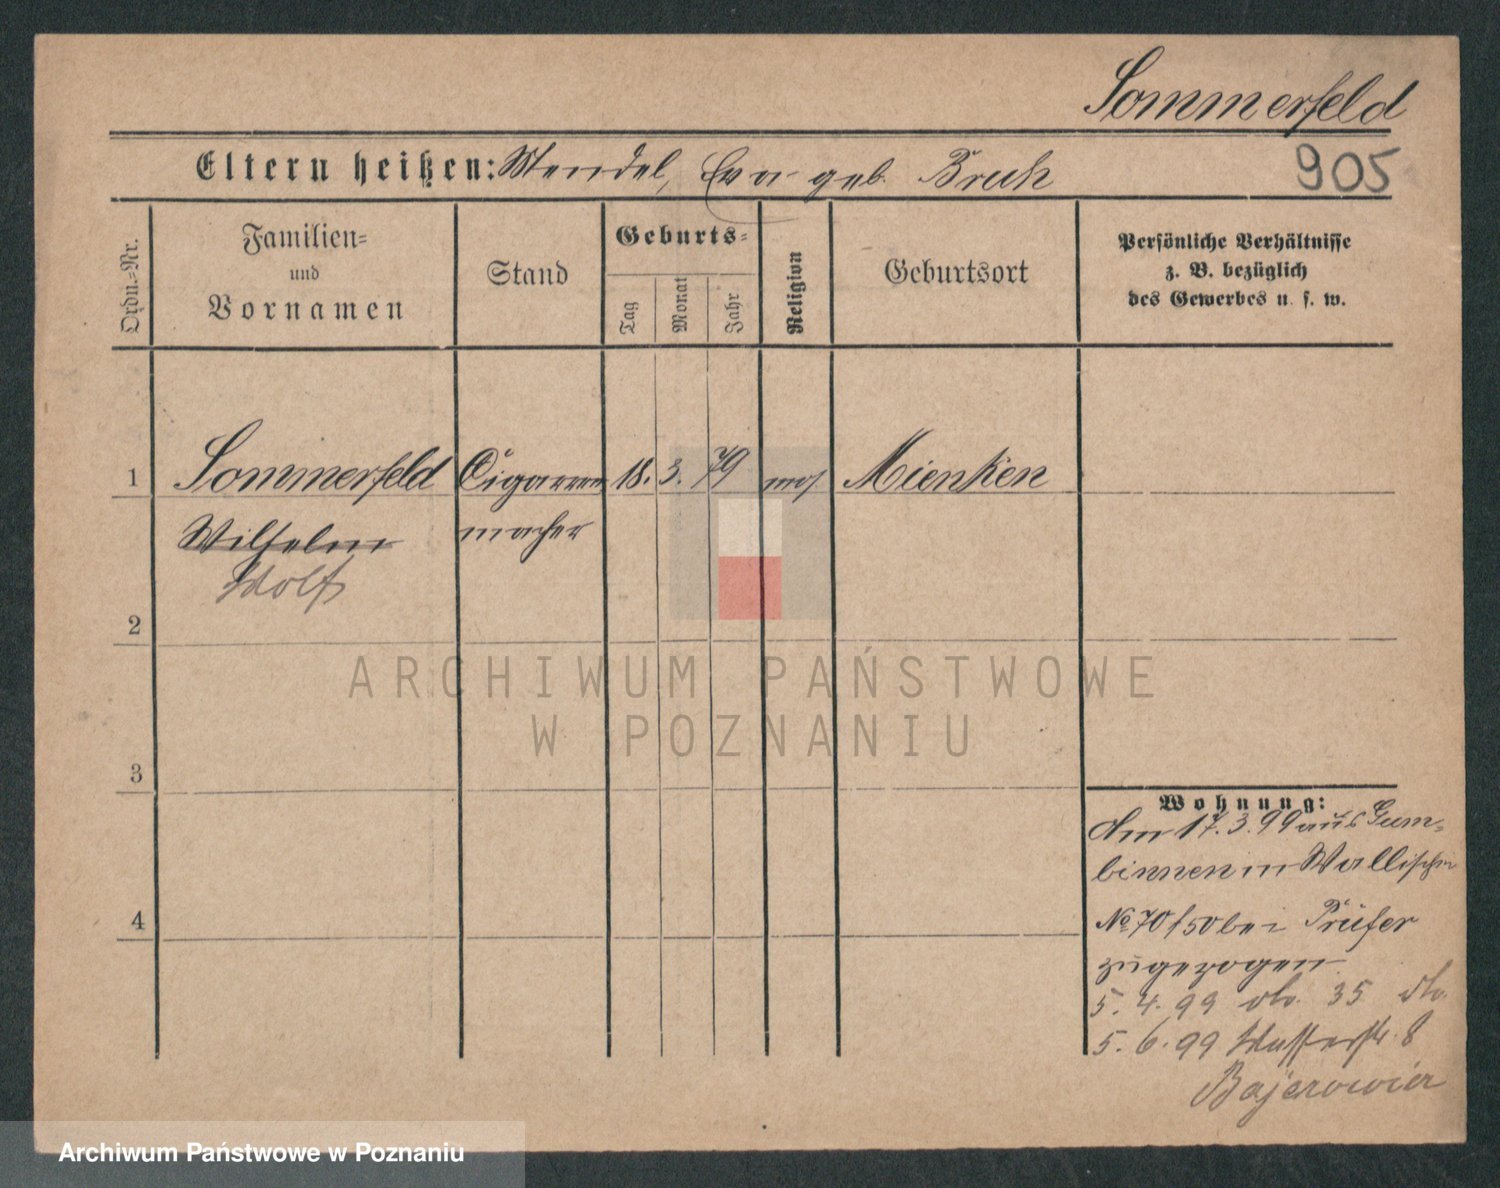 Sommerfeld
Eltern heißen: Mendel, Eva geb. Bruch
905
Ordn.=Nr.
Familien=
und
Vornamen
Stand
Geburts=
Tag
Monat
Jahr
Religion
Geburtsort
Persönliche Verhältnisse
z. B. bezüglich
des Gewerbes u. s. w.
1 Sommerfeld Cigarren 18. 3. 79 mos.
Wilhelm macher
Wolff
2
3
4
ARCHIWUM PAŃSTWOWE
W POZNANIU
Wohnung:
Am 17.3.99 aus Gum=
binnen in Wallischei
No 70/50 bei Prüfer
zugezogen
5. 4. 99 do. 35 do.
5. 6. 99 Wasserstr. 8
Bajerowicz
Archiwum Państwowe w Poznaniu